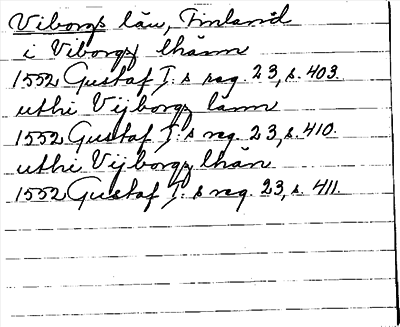 Viborgs län, Finland
i Viborgz lhänn
1552 Gustaf I:s reg. 23, s. 403.
uthi Vijborgz länn
1552 Gustaf I:s reg. 23, s. 410.
uthi Vijborgz lhän
1552 Gustaf I:s reg. 23, s. 411.